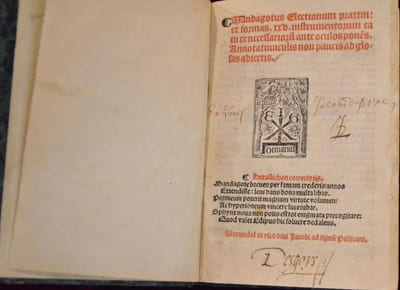 Mandagotus Electionum praxim:
et formas .xxv. instrumentorum ea
in re necessariorũ ante oculos ponẽs.
Annotatiunculis non paucis ad glo-
sas adiectis.
E G
Hexastichon correctoris.
Mandagote breues per famam crederis annos
Extendisse: leuis dans bona multa libro.
Pigmeum poterit magnum virtute volumen
Ac hyperioneum vincere luce iubar.
Sphynx noua non potis est tot enigmata precogitare:
Quod valet Edipus hic soluere dedaleus.
Venundat in vico diui Jacobi ad signũ Pellicani.